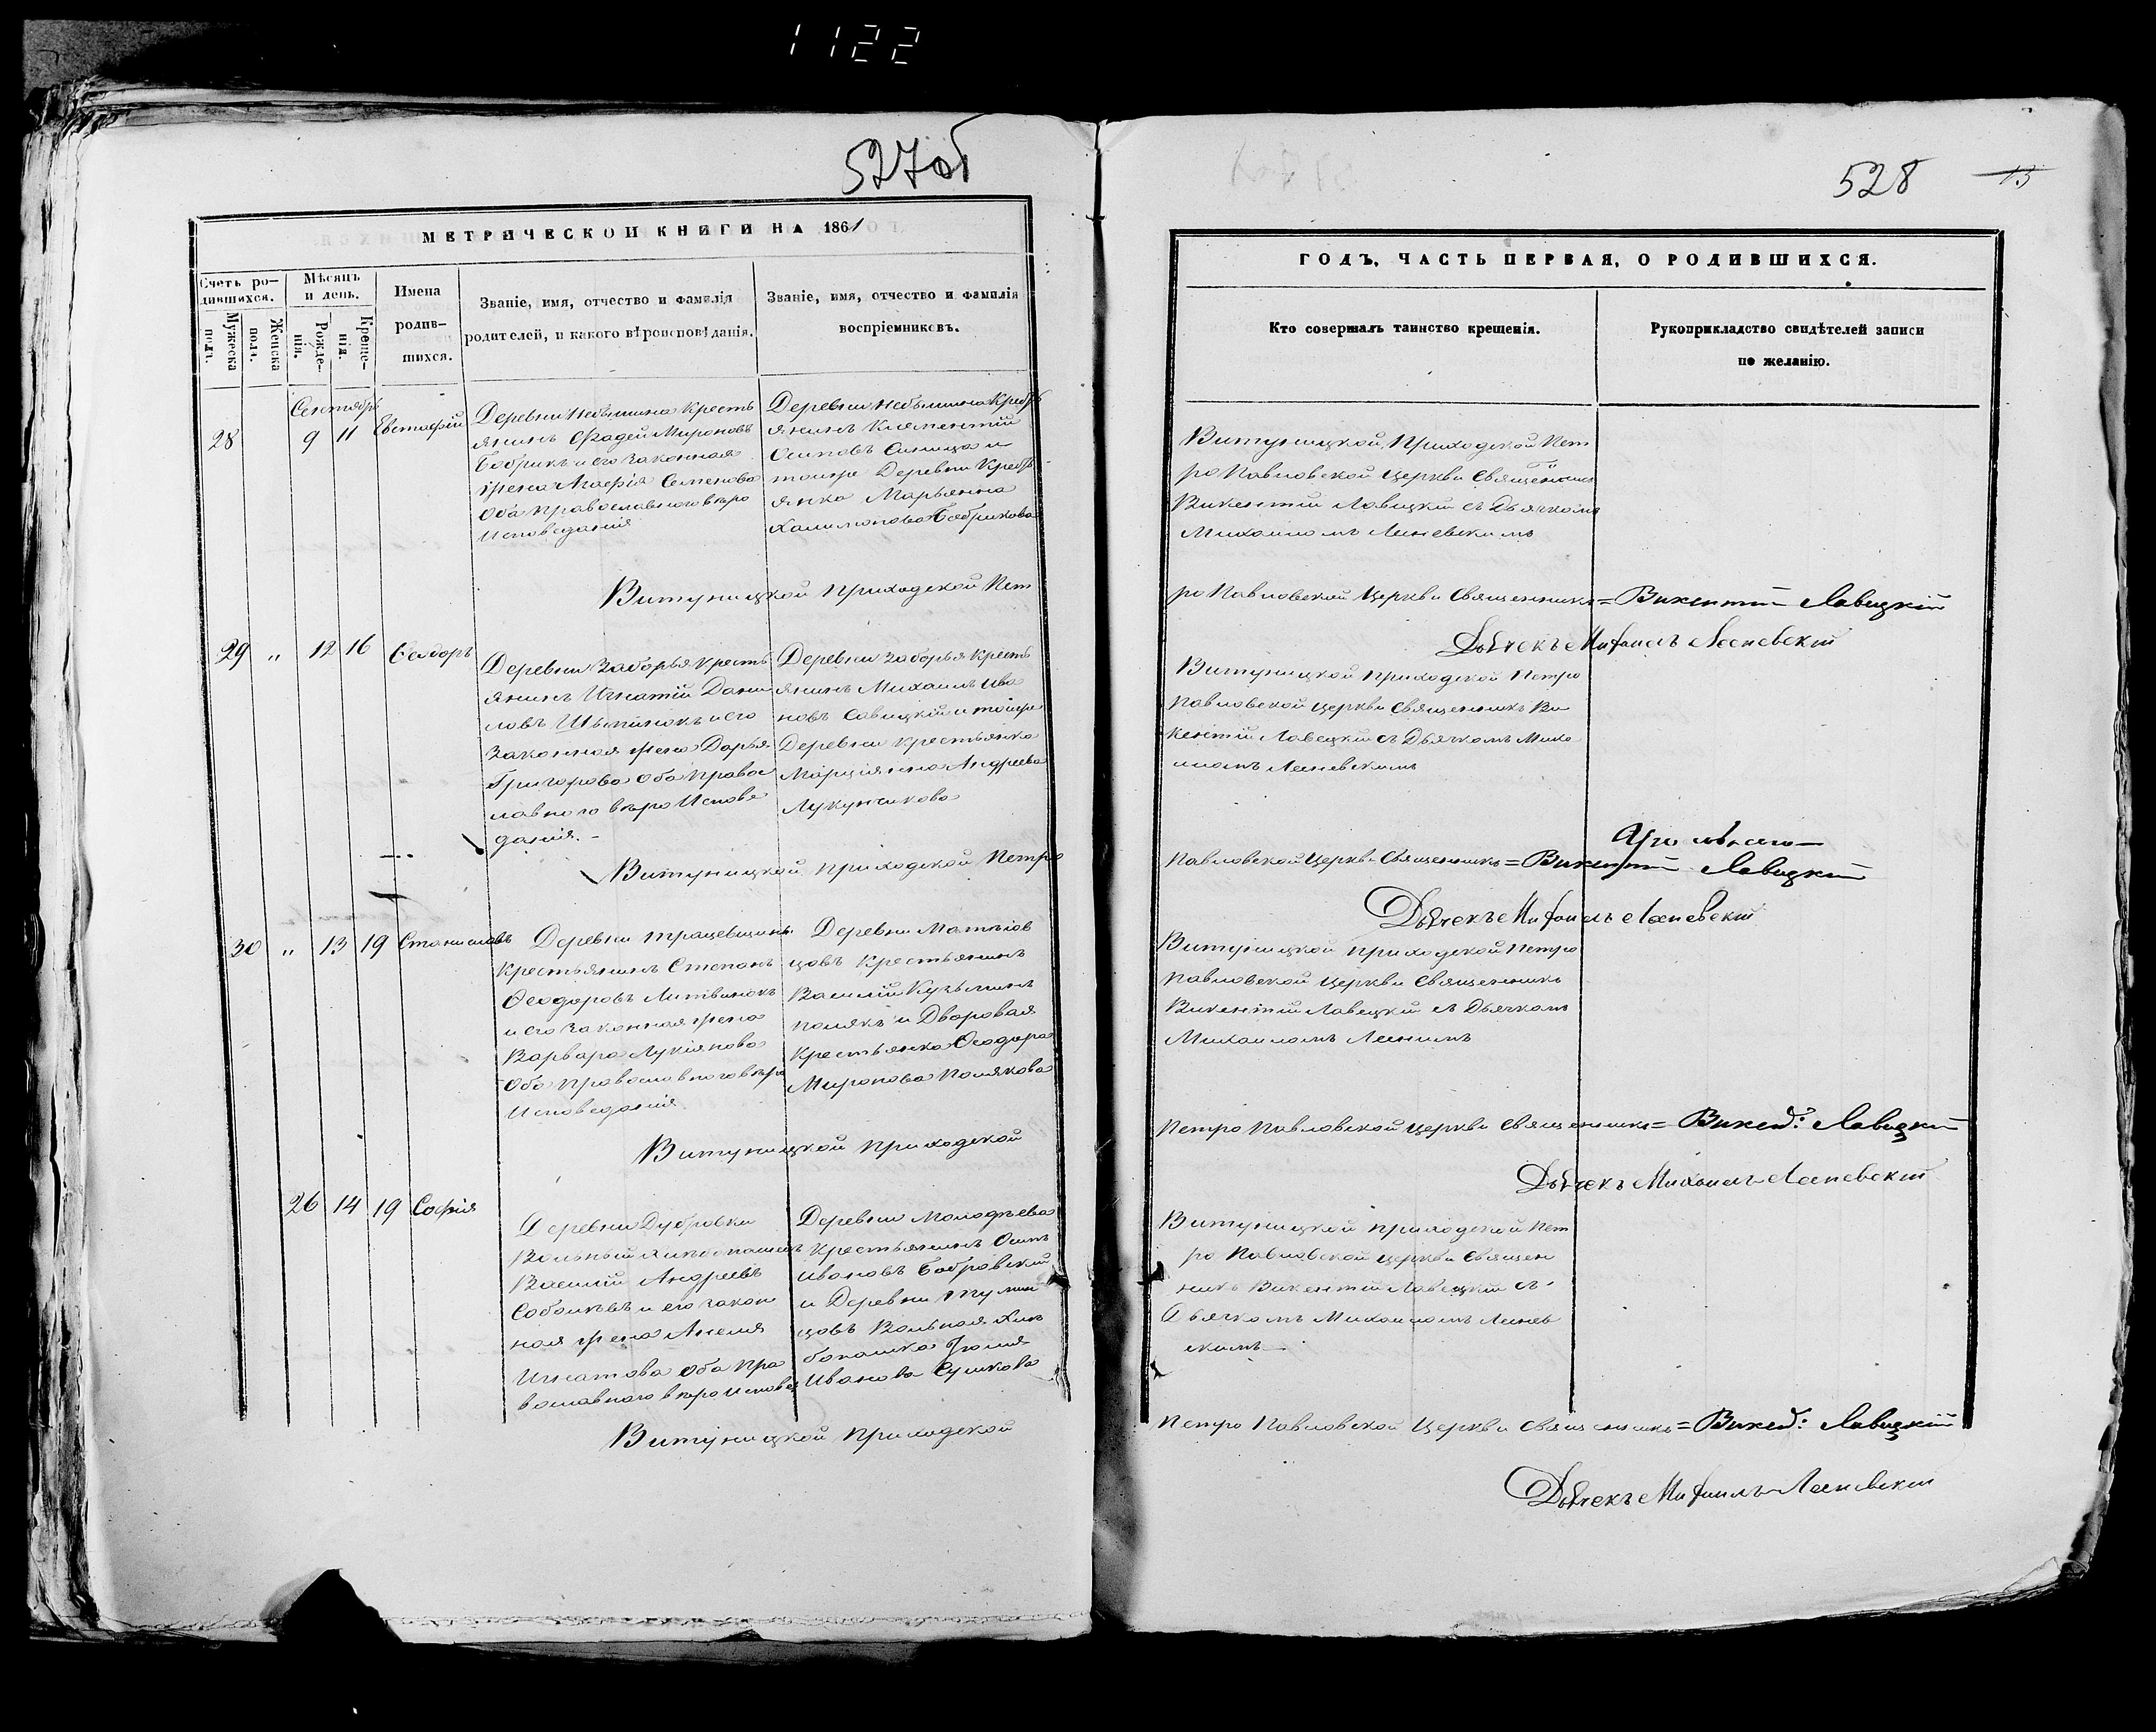 1122
527об
МЕТРИЧЕСКОЙ КНИГИ НА 1861
Счетъ ро-
дившихся.
Мужеска
полъ.
Женска
полъ.
Мѣсяцъ
и день.
Рожде-
нія.
Креще-
нія.
Имена
родив-
шихся.
Званіе, имя, отчество и фамилія
родителей, и какого вѣроисповѣданія.
Званіе, имя, отчество и фамилія
воспріемниковъ.
Сентябрь
28 9 11 Евстафій
Деревни Небышина Кресть
янинъ Фадей Мироновъ
Бобрикъ и его законная
жена Агафія Семенова
Оба православнаго веро
исповеданія
Деревни Небышина Кресть
янинъ Климентій
Осиповъ Синица и
тойже Деревни Кресть
янка Марьянна
Халимонова Бобрикова
Витуницкой приходской Пет
29 " 12 16 Феодоръ
Деревни Заборья Кресть
янинъ Игнатій Дани
ловъ и его
законная жена Дарья
Григорьева Оба правос
лавнаго веро Испове
данія.
Деревни Заборья Кресть
янинъ Михаилъ Ива
новъ Савицкій и тойже
Деревни крестьянка
Марціянна Андреева
Витуницкой приходской Петро
30 " 13 19 Станиславъ
Деревни
Крестьянинъ Степанъ
Феодоровъ Литвинокъ
и его законная жена
Варвара Лукіянова
Оба Православнаго веро
Исповеданія
Деревни
цовъ Крестьянинъ
Василій Кузьминъ
Полякъ и Дворовая
Крестьянка Феодора
Миронова Полякова
Витуницкой приходской
26 14 19 Софія
Деревни Дубровки
Вольный
Василій Андреевъ
и его закон
ная жена Анелія
Игнатова Оба Пра
вославнаго веро испове
Деревни
Крестьянинъ Осипъ
Ивановъ Бобровскій
и Деревни
цовъ Вольная Хле
бопашка Юлія
Иванова Сушкова
Витуницкой приходской
528 13
ГОДЪ, ЧАСТЬ ПЕРВАЯ, О РОДИВШИХСЯ.
Кто совершалъ таинство крещенія.
Рукоприкладство свидѣтелей записи
по желанію.
Витуницкой Приходской Пет
ро Павловской Церкви Священникъ
Викентій Лавицкій съ Дьячкомъ
Михаиломъ Леневскимъ
ро Павловской Церкви Священникъ = Викентій Лавицкій
Дьячекъ Михаилъ
Витуницкой приходской Петро
Павловской Церкви Священникъ Ви
кентій Лавецкій съ Дьячкомъ Миха
иломъ Леневскимъ
Павловской Церкви Священникъ = Викентій Лавицкій
Дьячекъ Михаилъ
Витуницкой приходской Петро
Павловской Церкви Священникъ
Викентій Лавецкій съ Дьячкомъ
Михаиломъ
Петро Павловской Церкви Священникъ = Викен: Лавицкій
Дьячекъ Михаилъ
Витуницкой приходской Пет
ро Павловской Церкви Священ
никъ Викентій Лавецкій съ
Дьячкомъ Михаиломъ Ленев
скимъ
Петро Павловской Церкви Священникъ = Викен: Лавицкій
Дьячекъ Михаилъ